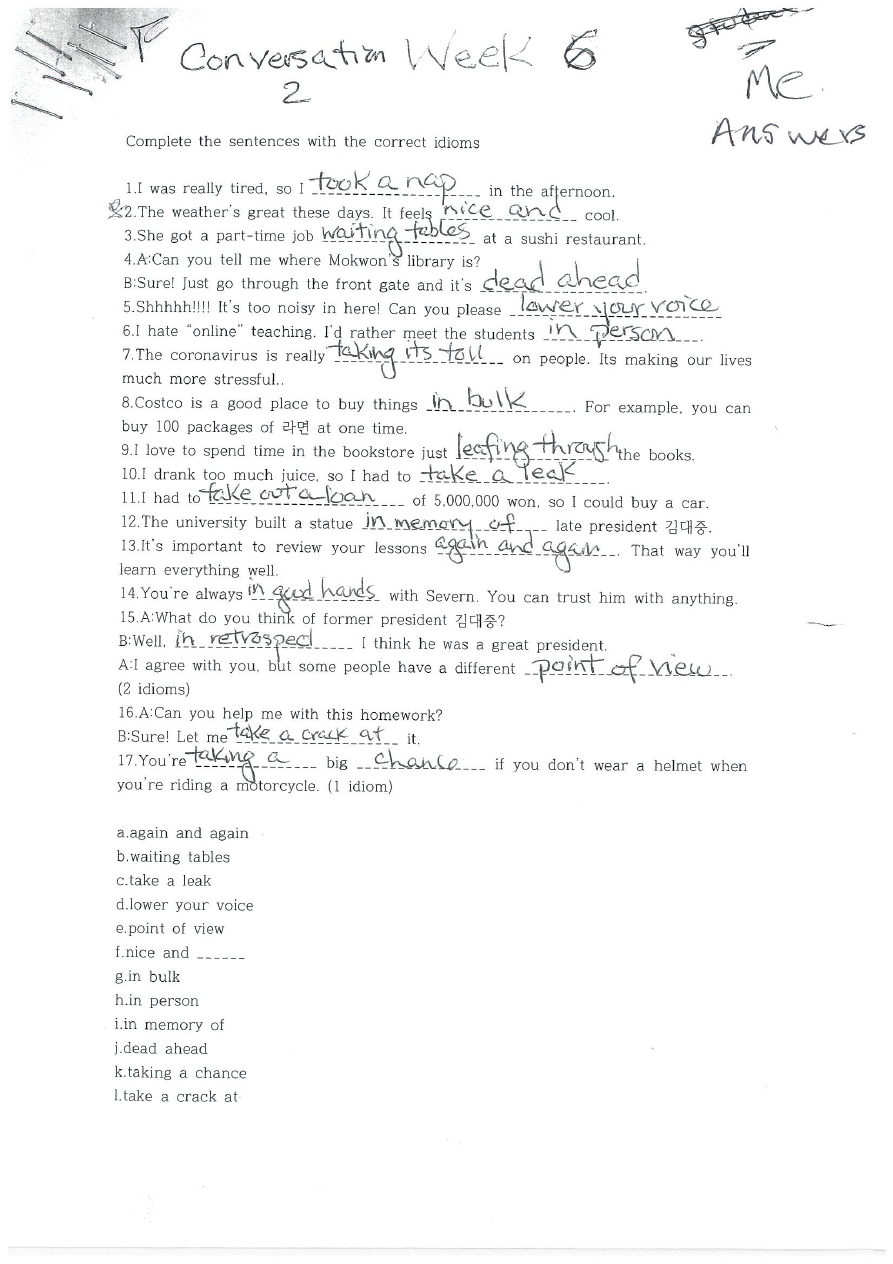 Conversation Week 6
2
Me
Answers
Complete the sentences with the correct idioms
1.I was really tired, so I took a nap in the afternoon.
2.The weather's great these days. It feels nice and cool.
3.She got a part-time job waiting tables at a sushi restaurant.
4.A:Can you tell me where Mokwon's library is?
B:Sure! Just go through the front gate and it's dead ahead.
5.Shhhhh!!!! It's too noisy in here! Can you please lower your voice
6.I hate "online" teaching. I'd rather meet the students in person.
7.The coronavirus is really taking its toll on people. Its making our lives
much more stressful..
8.Costco is a good place to buy things in bulk. For example, you can
buy 100 packages of 라면 at one time.
9.I love to spend time in the bookstore just leafing through the books.
10.I drank too much juice, so I had to take a leak.
11.I had to take out a loan of 5,000,000 won, so I could buy a car.
12.The university built a statue in memory of late president 김대중.
13.It's important to review your lessons again and again. That way you'll
learn everything well.
14.You're always in good hands with Severn. You can trust him with anything.
15.A:What do you think of former president 김대중?
B:Well, in retrosped I think he was a great president.
A:I agree with you, but some people have a different point of view.
(2 idioms)
16.A:Can you help me with this homework?
B:Sure! Let me take a crack at it.
17.You're taking a big chance if you don't wear a helmet when
you're riding a motorcycle. (1 idiom)
a.again and again
b.waiting tables
c.take a leak
d.lower your voice
e.point of view
f.nice and ______
g.in bulk
h.in person
i.in memory of
j.dead ahead
k.taking a chance
l.take a crack at